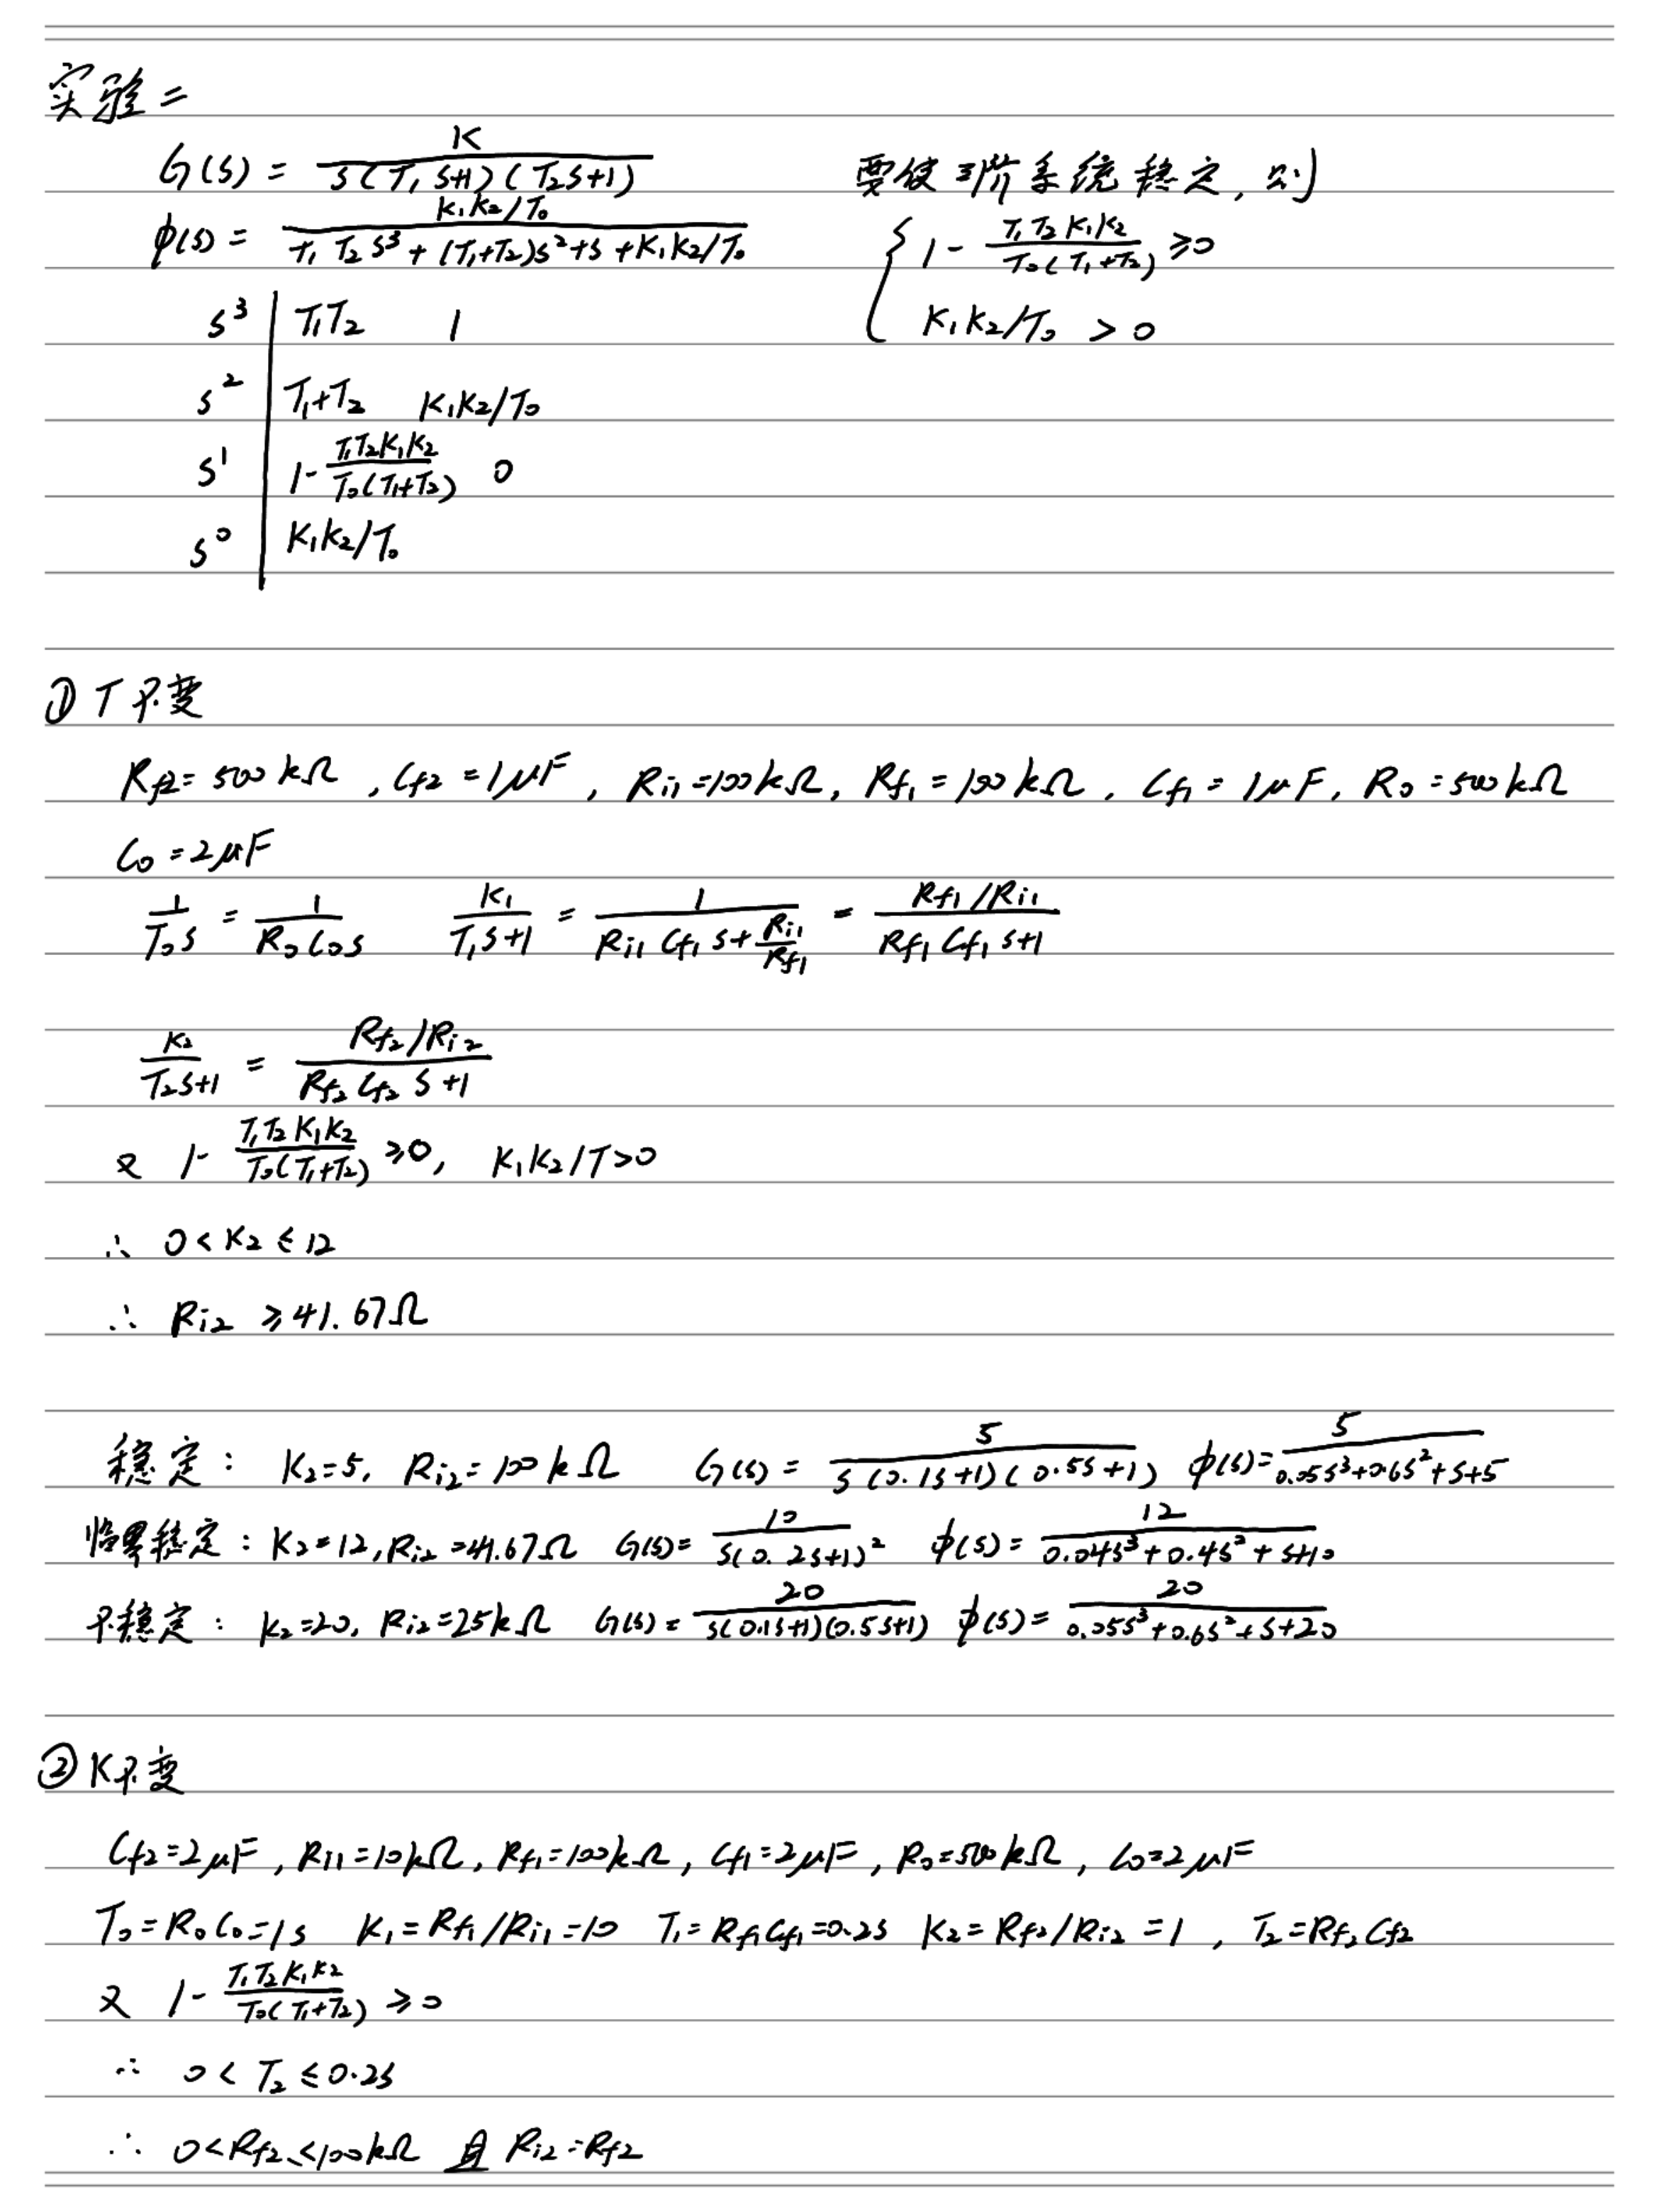 实验二
G(s) = K / s(T₁s+1)(T₂s+1)
要使三阶系统稳定, 则
φ(s) = K₁K₂/T₀ / T₁T₂s³+(T₁+T₂)s²+s+K₁K₂/T₀
{ 1 - T₁T₂K₁K₂ / T₀(T₁+T₂) ≥0
K₁K₂/T₀ > 0
s³ | T₁T₂ 1
s² | T₁+T₂ K₁K₂/T₀
s¹ | 1- T₁T₂K₁K₂ / T₀(T₁+T₂) 0
s⁰ | K₁K₂/T₀
① T不变
Rf2=500kΩ, Cf2=1μF, Ri1=100kΩ, Rf1=100kΩ, Cf1=1μF, R₀=500kΩ
C₀=2μF
1/T₀s = 1/R₀C₀s K₁/T₁s+1 = 1 / Ri1Cf1s+Ri1/Rf1 = Rf1/Ri1 / Rf1Cf1s+1
K₂/T₂s+1 = Rf2/Ri2 / Rf2Cf2s+1
又 1- T₁T₂K₁K₂ / T₀(T₁+T₂) ≥0, K₁K₂/T>0
∴ 0<K₂≤12
∴ Ri2 ≥41.67Ω
稳定: K₂=5, Ri2=100kΩ G(s)= 5 / s(0.1s+1)(0.5s+1) φ(s)= 5 / 0.05s³+0.6s²+s+5
临界稳定: K₂=12, Ri2=41.67Ω G(s)= 10 / s(0.2s+1)² φ(s)= 12 / 0.04s³+0.4s²+s+10
不稳定: K₂=20, Ri2=25kΩ G(s)= 20 / s(0.1s+1)(0.5s+1) φ(s)= 20 / 0.05s³+0.6s²+s+20
② K不变
Cf2=2μF, Ri1=10kΩ, Rf1=100kΩ, Cf1=2μF, R₀=500kΩ, C₀=2μF
T₀=R₀C₀=1s K₁=Rf1/Ri1=10 T₁=Rf1Cf1=0.2s K₂=Rf2/Ri2=1, T₂=Rf2Cf2
又 1- T₁T₂K₁K₂ / T₀(T₁+T₂) ≥0
∴ 0<T₂≤0.2s
∴ 0<Rf2≤100kΩ 且 Ri2=Rf2